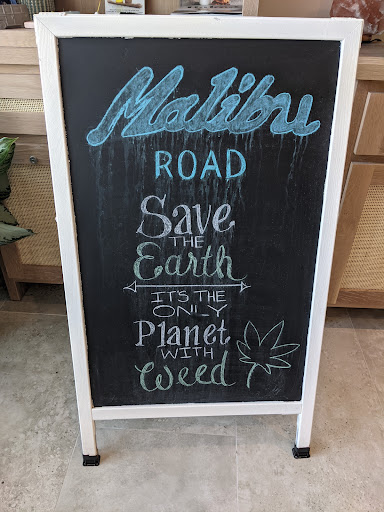 Malibu
ROAD
Save
THE
Earth
ITS THE
ONLY
Planet
WITH
Weed